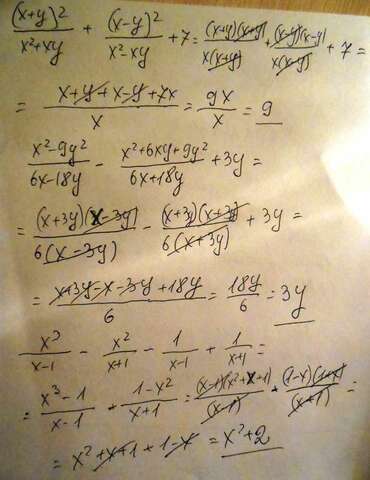 (x+y)²/(x²+xy) + (x-y)²/(x²-xy) + 7 = (x+y)(x+y)/x(x+y) + (x-y)(x-y)/x(x-y) + 7 =
= (x+y+x-y+7x)/x = 9x/x = 9
(x²-9y²)/(6x-18y) - (x²+6xy+9y²)/(6x+18y) + 3y =
= (x+3y)(x-3y)/6(x-3y) - (x+3y)(x+3y)/6(x+3y) + 3y =
= (x+3y-x-3y+18y)/6 = 18y/6 = 3y
x³/(x-1) - x²/(x+1) - 1/(x-1) + 1/(x+1) =
= (x³-1)/(x-1) + (1-x²)/(x+1) = (x-1)(x²+x+1)/(x-1) + (1-x)(1+x)/(x+1) =
= x²+x+1+1-x = x²+2